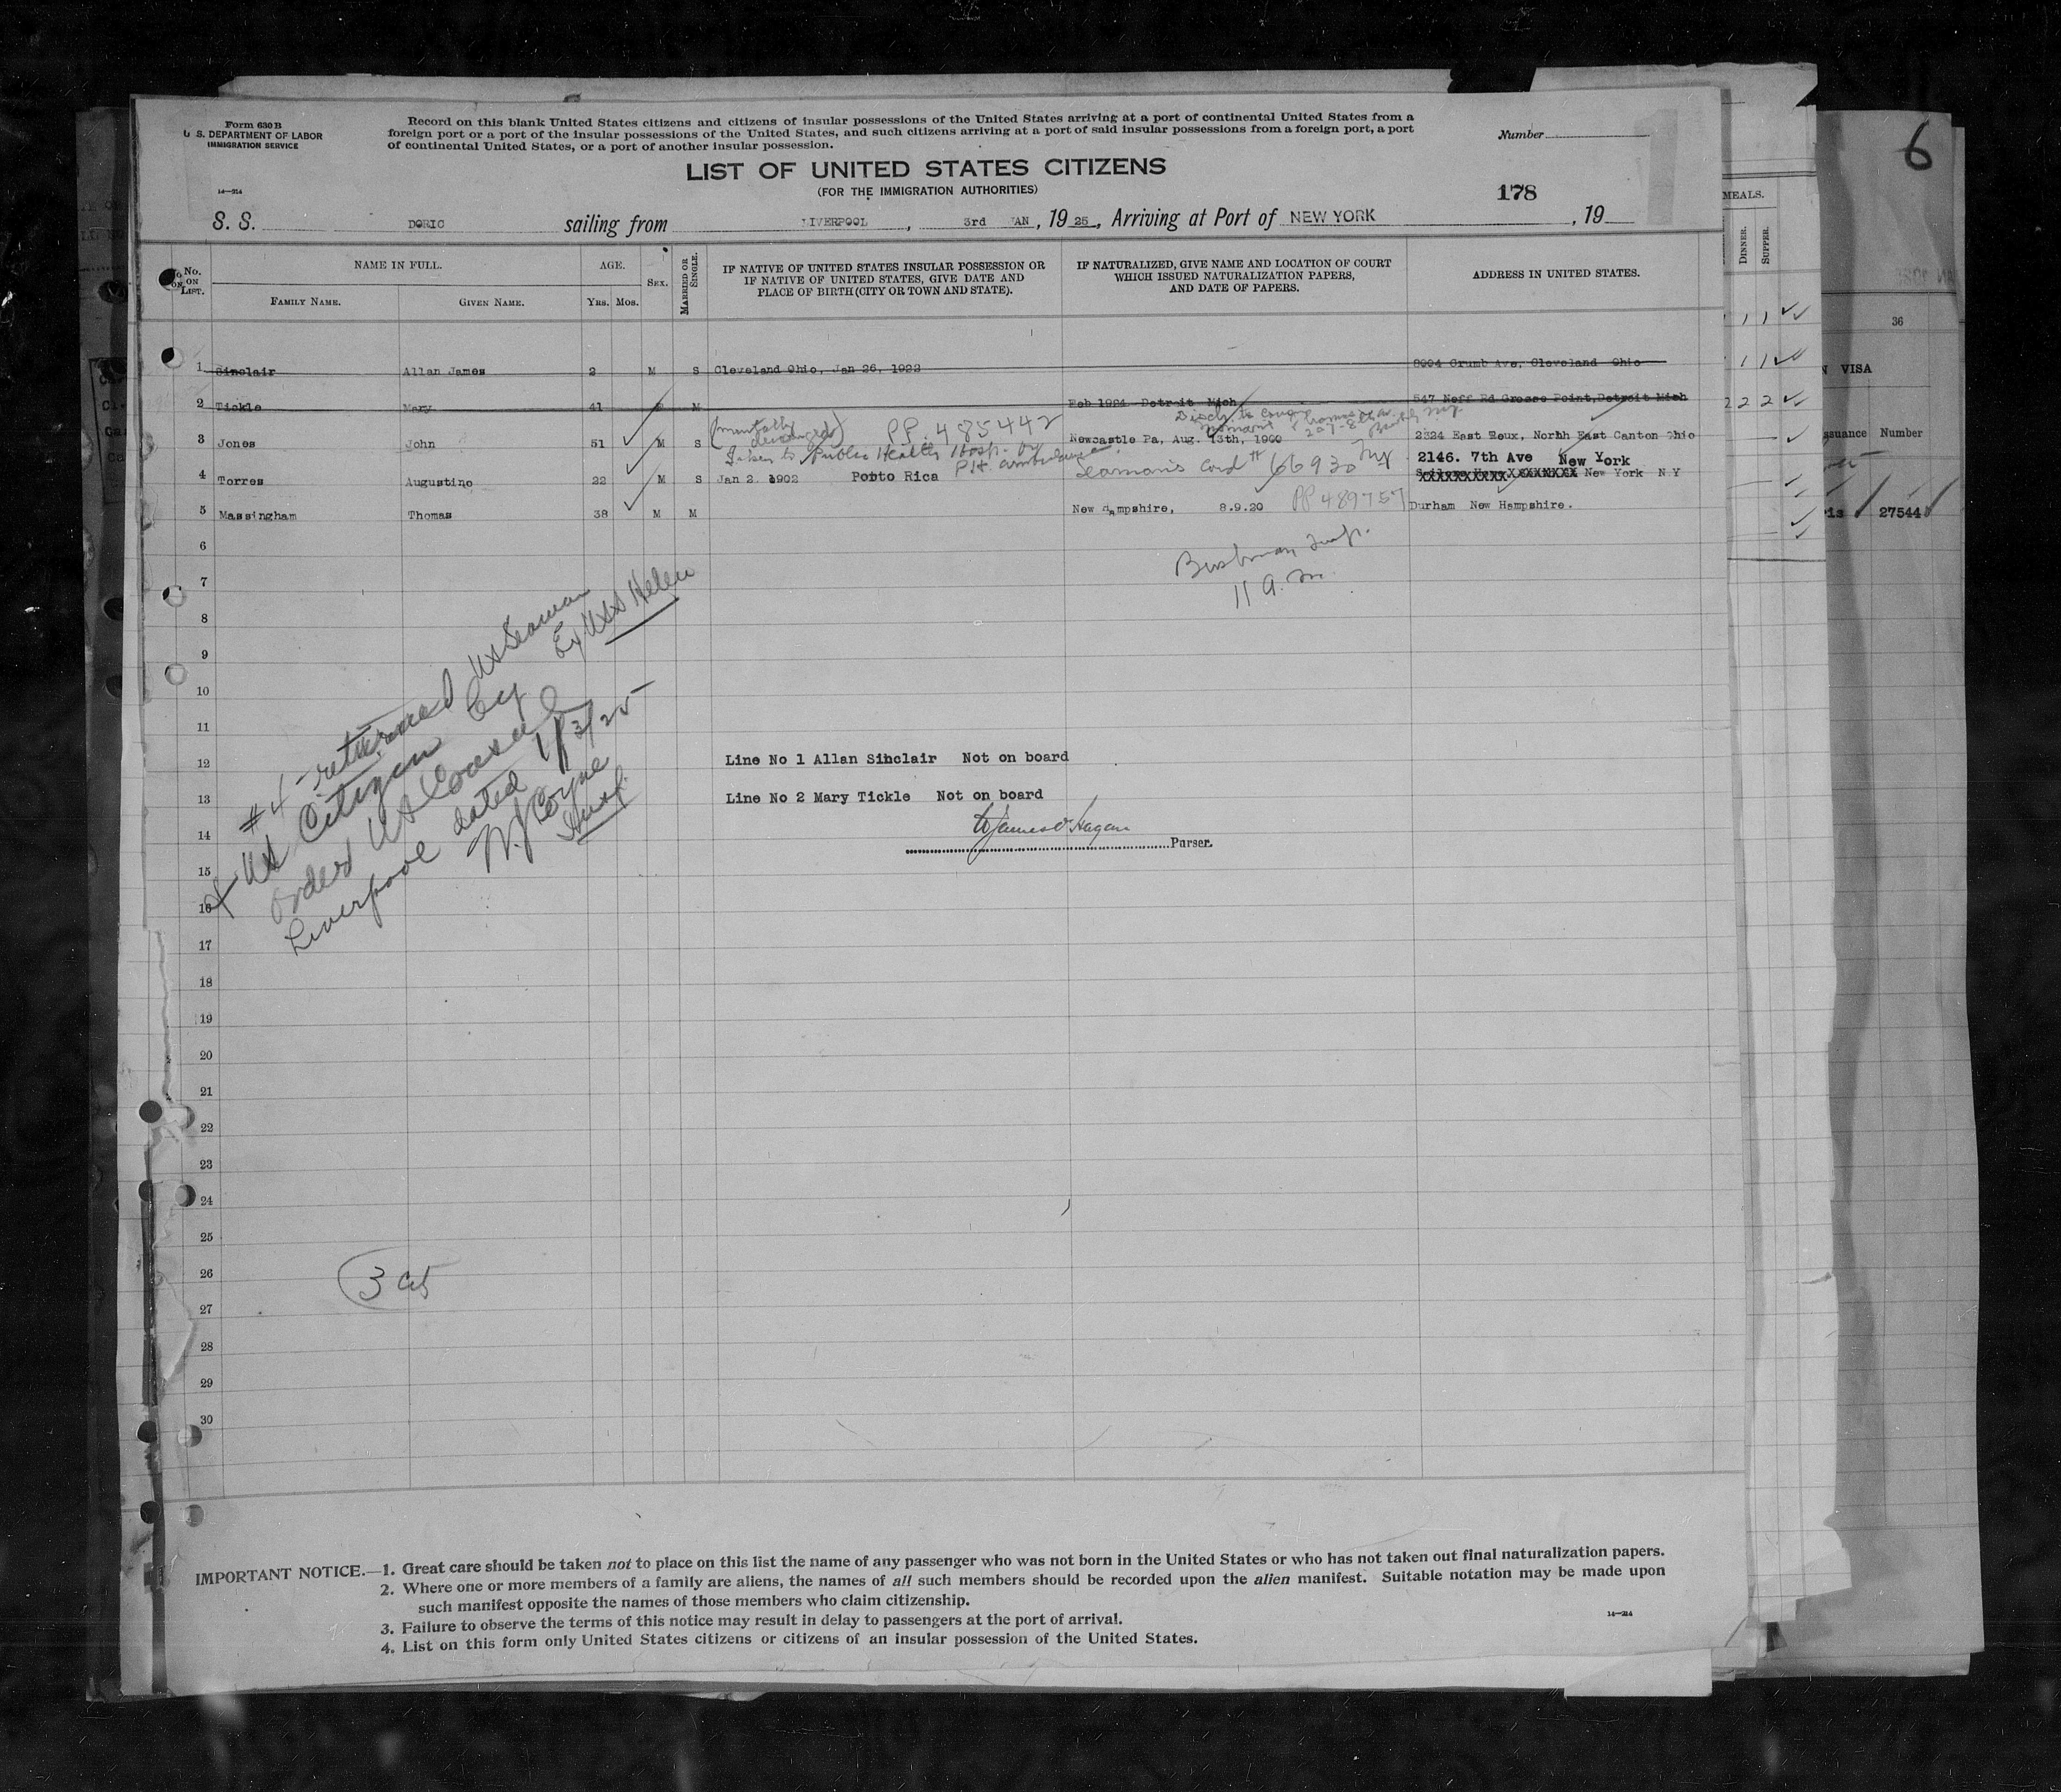 6
Form 630 B
U. S. DEPARTMENT OF LABOR
IMMIGRATION SERVICE
Record on this blank United States citizens and citizens of insular possessions of the United States arriving at a port of continental United States from a
foreign port or a port of the insular possessions of the United States, and such citizens arriving at a port of said insular possessions from a foreign port, a port
of continental United States, or a port of another insular possession.
Number
LIST OF UNITED STATES CITIZENS
(FOR THE IMMIGRATION AUTHORITIES)
14-214
178
S. S. DORIC sailing from LIVERPOOL, 3rd JAN, 19 25, Arriving at Port of NEW YORK, 19
MEALS.
DINNER.
SUPPER.
No. ON LIST.
NAME IN FULL.
FAMILY NAME.
GIVEN NAME.
AGE.
Yrs. Mos.
SEX.
MARRIED OR SINGLE.
IF NATIVE OF UNITED STATES INSULAR POSSESSION OR
IF NATIVE OF UNITED STATES, GIVE DATE AND
PLACE OF BIRTH (CITY OR TOWN AND STATE).
IF NATURALIZED, GIVE NAME AND LOCATION OF COURT
WHICH ISSUED NATURALIZATION PAPERS,
AND DATE OF PAPERS.
ADDRESS IN UNITED STATES.
36
1 Sinclair Allan James 2 M S Cleveland Ohio, Jan 26, 1922 8004 Crumb Ave, Cleveland Ohio
VISA
2 Tickle Mary 41 F M Feb 1924 Detroit Mich 547 Neff Rd Grosse Point, Detroit Mich
(mentally deranged) PP. 485442
3 Jones John 51 M S Newcastle Pa, Aug. 13th, 1900 2324 East Roux, North East Canton Ohio
ssuance Number
Taken to Public Health Hosp. by P.H. ambulance
2146. 7th Ave New York
4 Torres Augustino 22 M S Jan 2. 1902 Porto Rica Seaman's Card # 66930 NY New York N Y
5 Massingham Thomas 38 M M New Hampshire, 8.9.20 PP 489757 Durham New Hampshire.
27544
6
Bushman Insp.
7
11 a.m.
8
9
10
11
12 Line No 1 Allan Sinclair Not on board
13 Line No 2 Mary Tickle Not on board
14
Purser.
15
16
#4 - returned US Seaman
Ex USS Helen
& US Citizen by
order US Consul
Liverpool dated 1/3/25
W. J. Coyne
Insp.
17
18
19
20
21
22
23
24
25
26
27
28
29
30
IMPORTANT NOTICE.—1. Great care should be taken not to place on this list the name of any passenger who was not born in the United States or who has not taken out final naturalization papers.
2. Where one or more members of a family are aliens, the names of all such members should be recorded upon the alien manifest. Suitable notation may be made upon
such manifest opposite the names of those members who claim citizenship.
3. Failure to observe the terms of this notice may result in delay to passengers at the port of arrival.
14-214
4. List on this form only United States citizens or citizens of an insular possession of the United States.